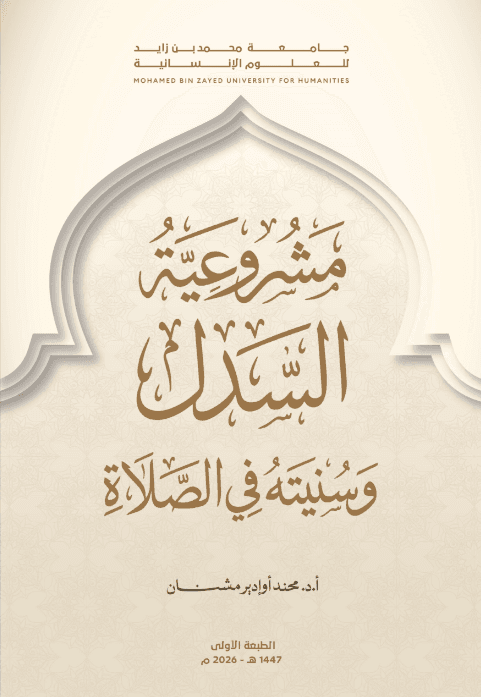 جامعة محمد بن زايد
للعلوم الإنسانية
MOHAMED BIN ZAYED UNIVERSITY FOR HUMANITIES
مَشْرُوعِيَّةُ
السَّدَلِ
وَسُنِّيَتَهُ فِي الصَّلَاةِ
أ.د. محند أوإدير مشنان
الطبعة الأولى
1447 هـ - 2026 م